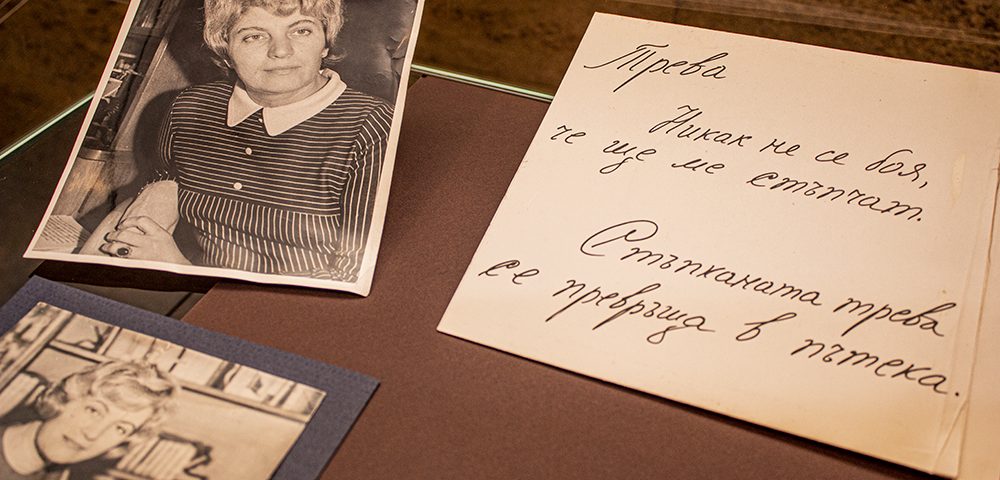 Трева
Никак не се боя,
че ще ме стъпчат.
Стъпканата трева
се превръща в пътека.